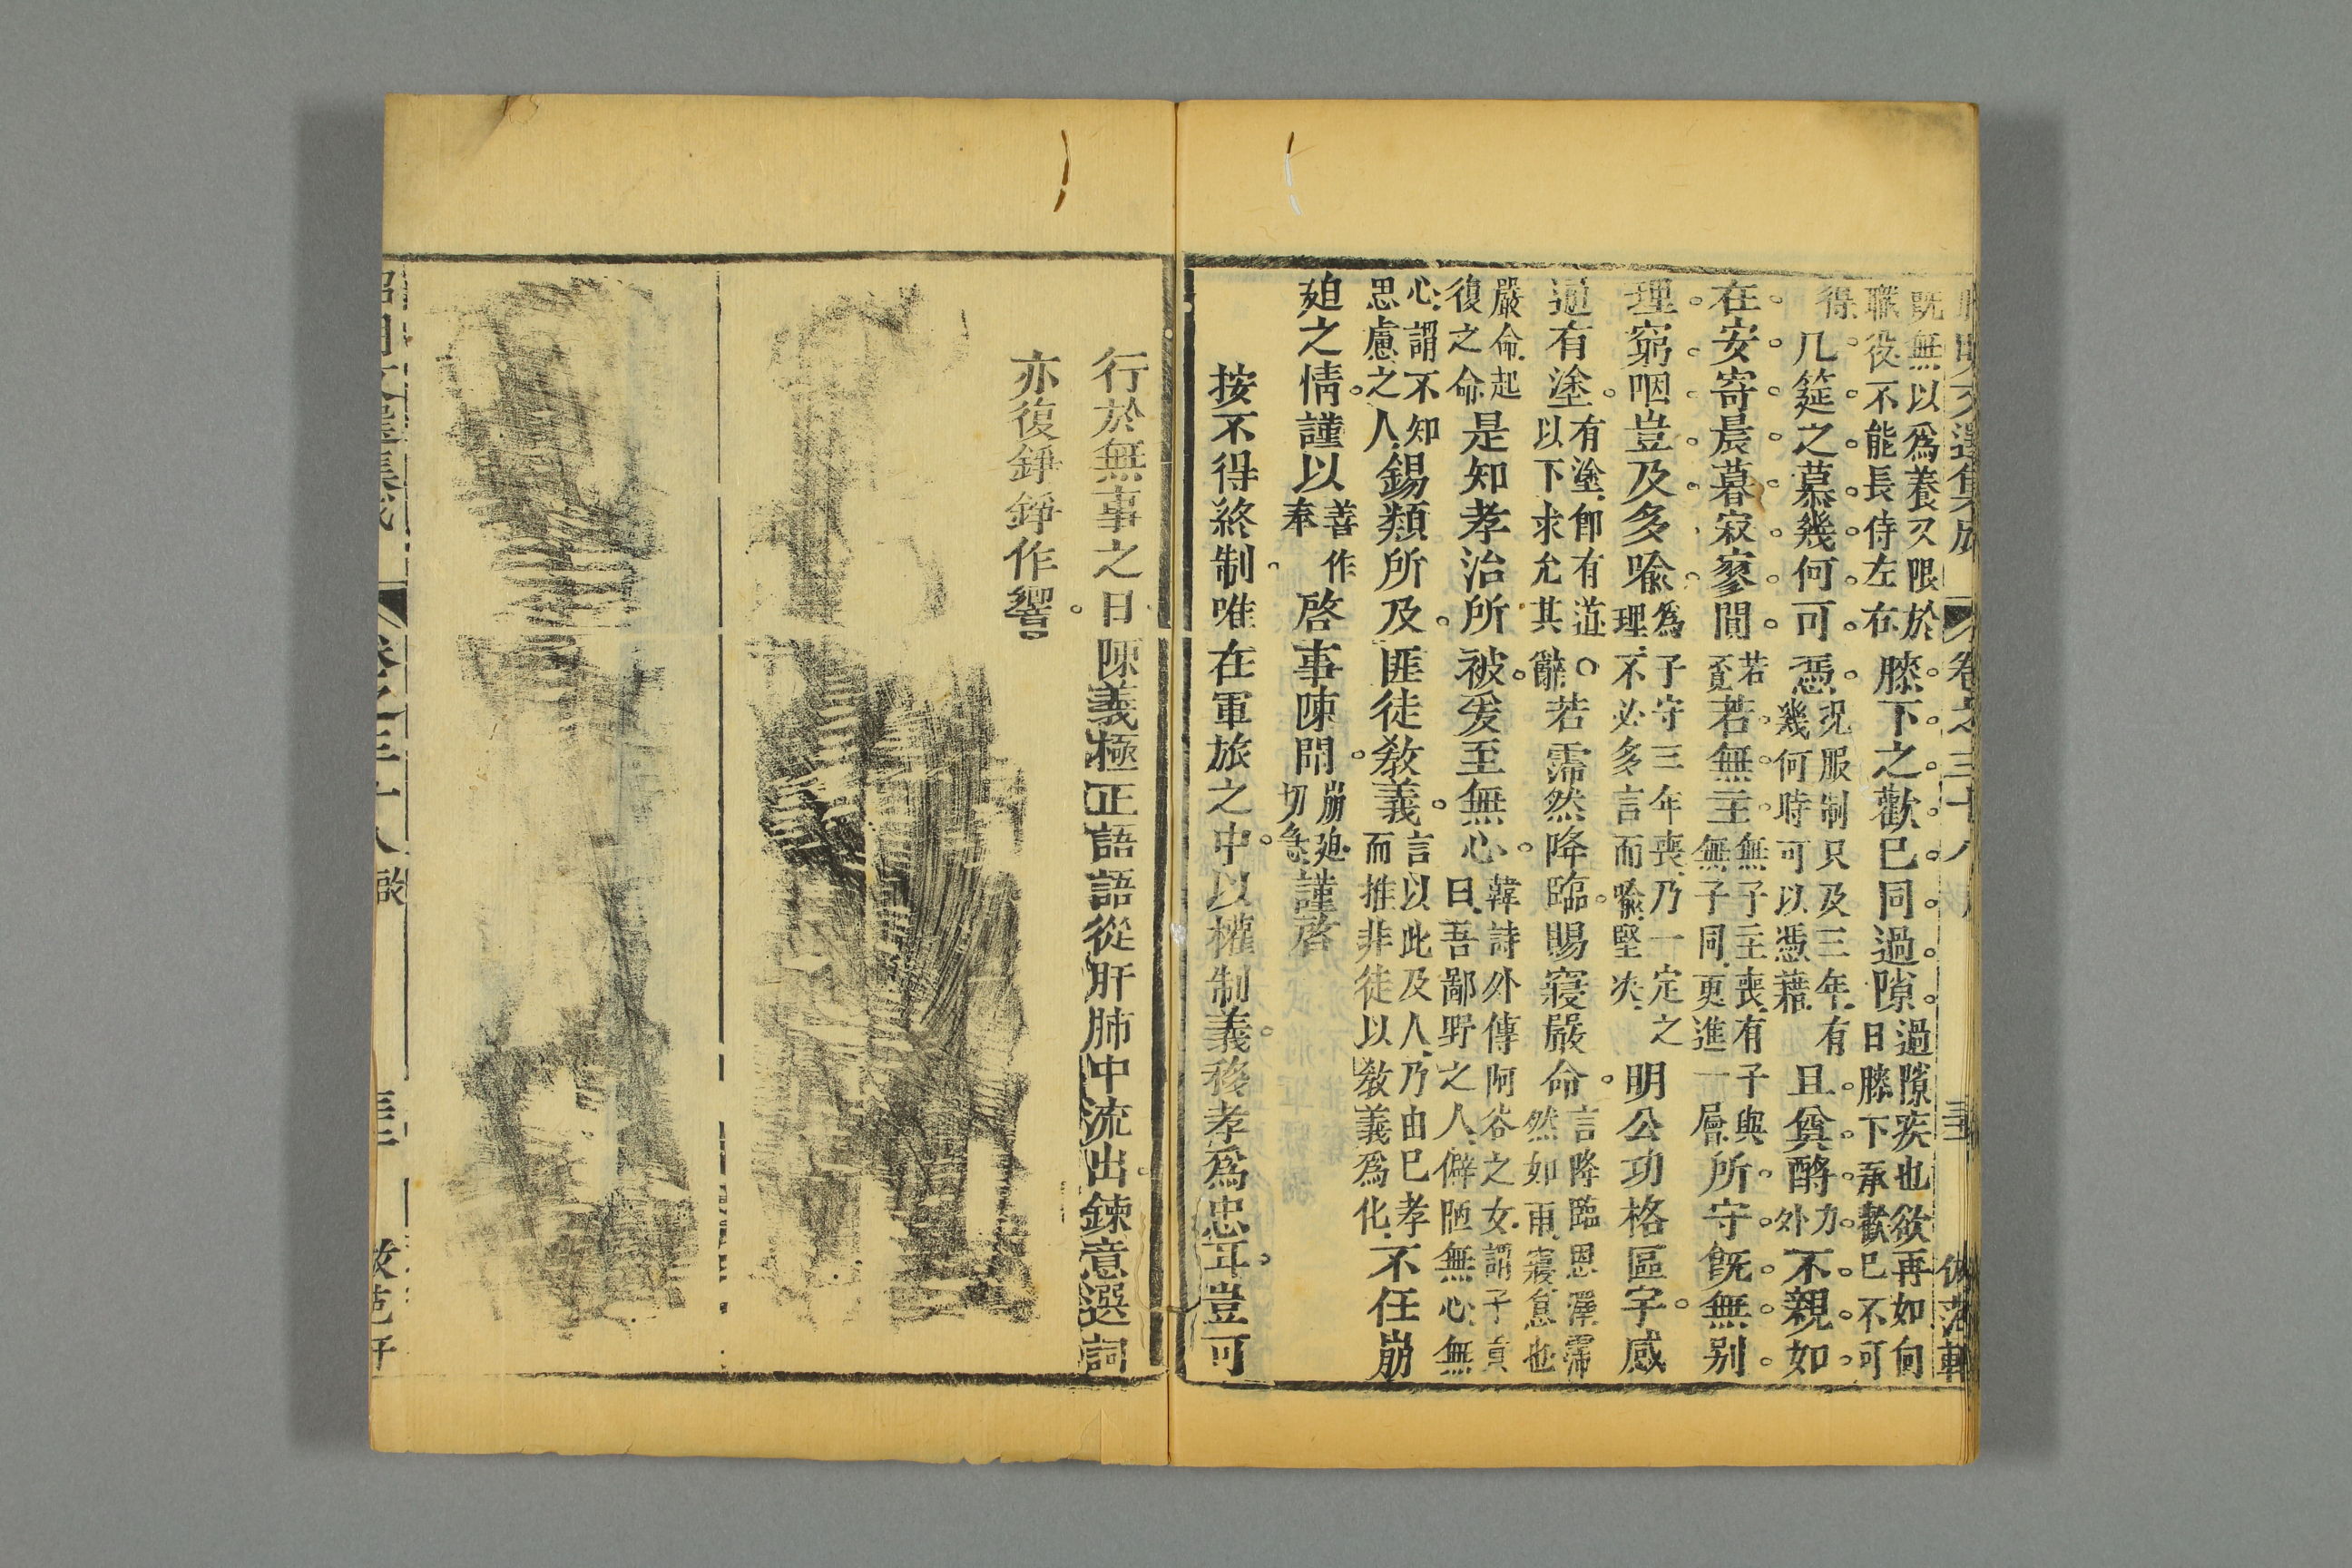 昭明文選集成 卷之三十八 啟 三 倣范軒
既無以爲養又限於
職役不能長侍左右
膝下之歡已同過隙
過隙疾也欲再如向
日膝下承歡已不可
得
几筵之慕幾何可憑
況服制只及三年有
幾何時可以憑藉
且奠酹
力
外
不親如
在安寄晨暮寂寥閴
若
若無主
無子主喪有子與
無子同更進一層
所守既無別
理窮咽豈及多喻
爲子守三年喪乃一定之
理不必多言而喻堅決
明公功格區宇感
通有塗
有塗卽有道
以下求允其辭
若霈然降臨賜寢嚴命
言降臨恩澤霈
然如雨寢怠也
嚴命起
復之命
是知孝治所被爰至無心
韓詩外傳阿谷之女謂子貢
曰吾鄙野之人僻陋無心無
心謂不知
思慮之人
錫類所及匪徒教義
言以此及人乃由己孝
而推非徒以教義爲化
不任崩
廹之情謹以
善作
奉
啓事陳聞
崩廹
切急
謹啓
按不得終制唯在軍旅之中以權制義移孝爲忠耳豈可
行於無事之日陳義極正語語從肝肺中流出鍊意選詞
亦復錚錚作響
卷之三十八 啟